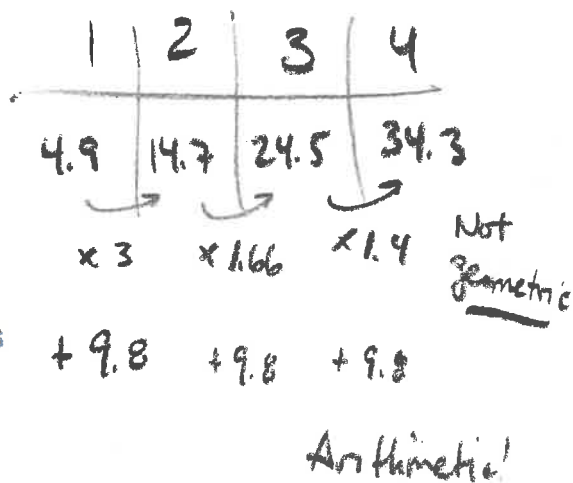 1 2 3 4
4.9 14.7 24.5 34.3
x 3 x 1.66 x 1.4 Not
geometric
+ 9.8 + 9.8 + 9.8
Arithmetic!